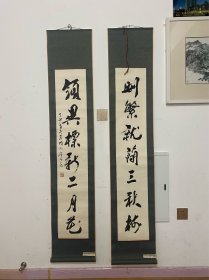 删繁就简三秋树
领异标新二月花